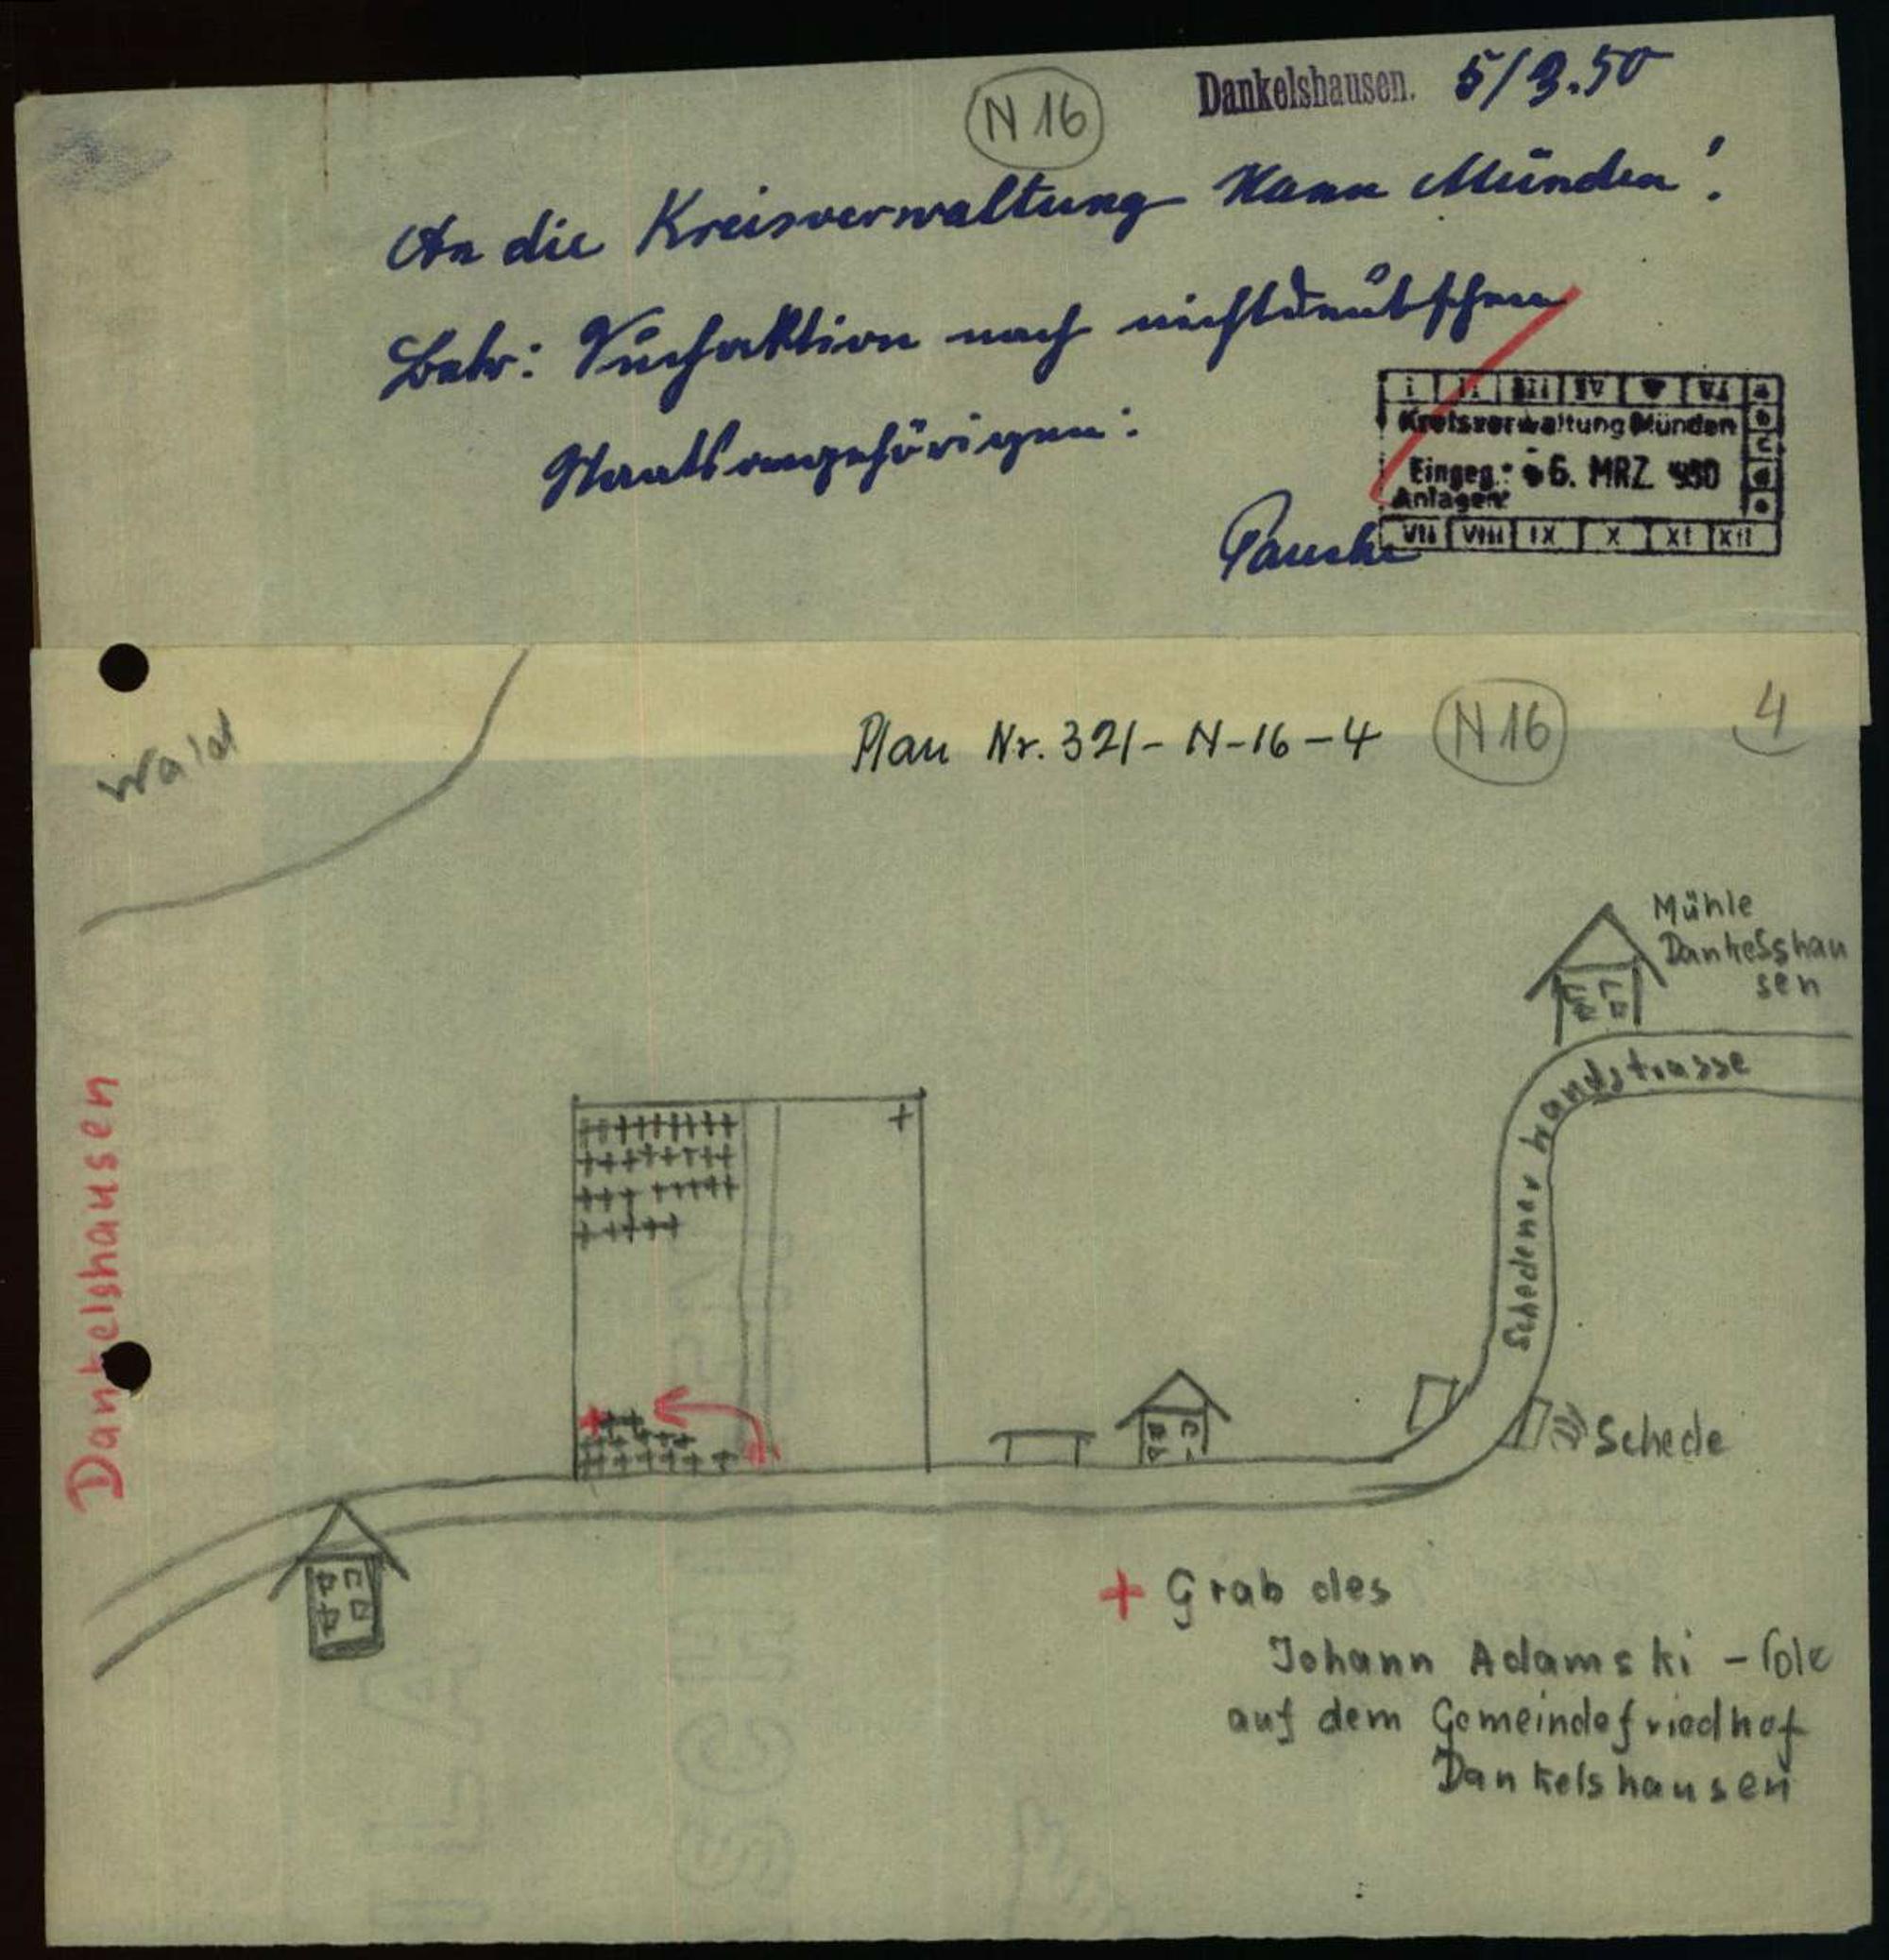 N 16
Dankelshausen. 5/3.50
An die Kreisverwaltung Hann Münden!
Betr: Suchaktion nach nichtdeutschen
Staatsangehörigen:
I II III IV V VI a
Kreisverwaltung Münden b
c
Eingeg.: 6. MRZ. 950 d
Anlagen: e
VII VIII IX X XI XII
Wald
Plan Nr. 321-N-16-4
N 16
4
Mühle
Dankelshau
sen
Schedener Landstrasse
Dankelshausen
Schede
+ Grab des
Johann Adamski - Pole
auf dem Gemeindefriedhof
Dankelshausen